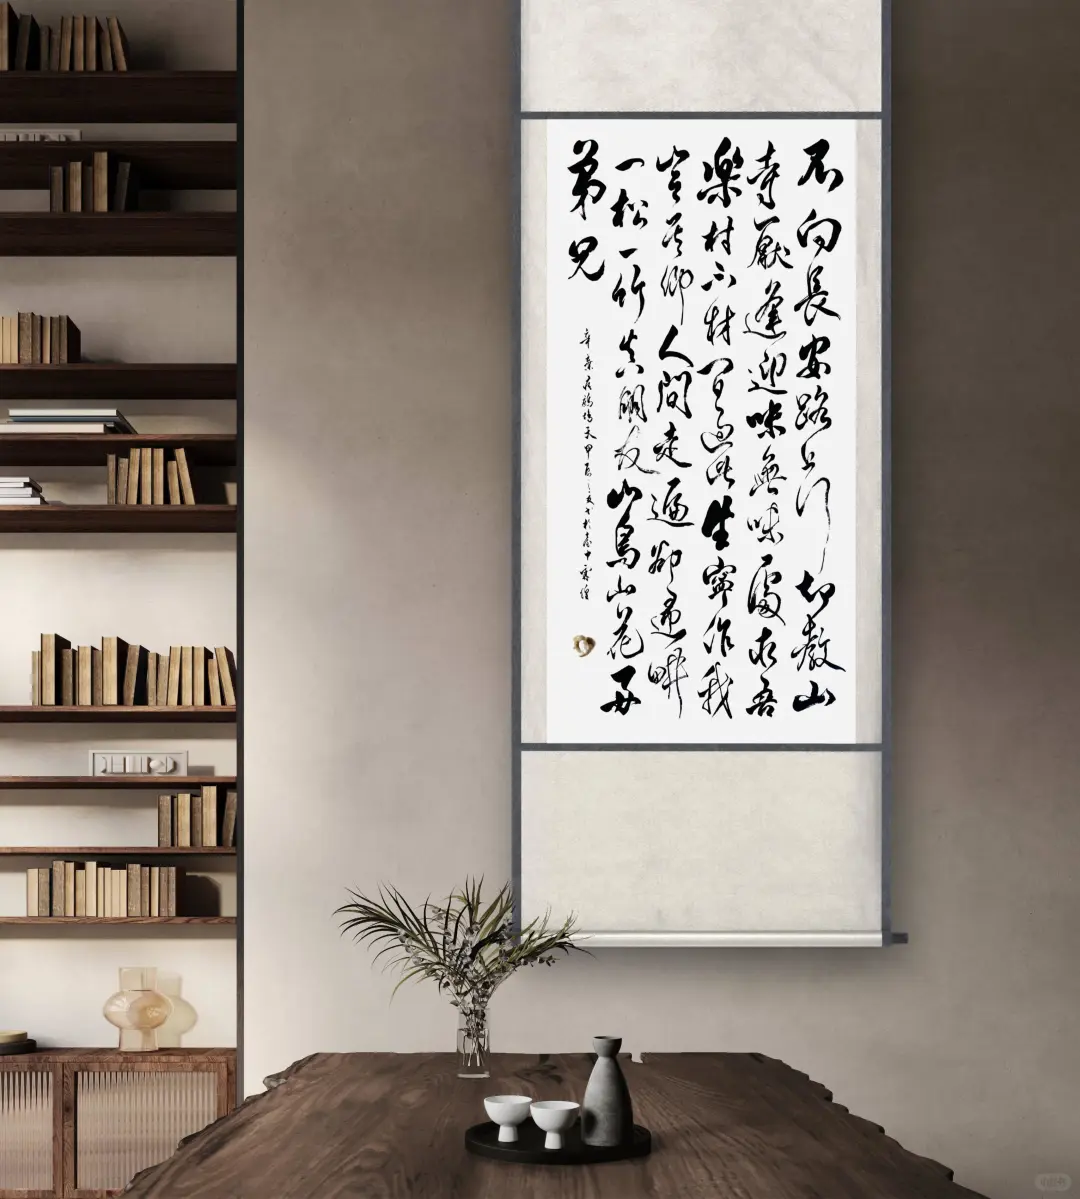 不向長安路上行却教山
寺厭逢迎味無味處求吾
樂材不材間過此生寧作我
豈其卿人間走遍却歸耕
一松一竹真朋友山鳥山花好
弟兄
辛棄疾鷓鴣天甲辰之